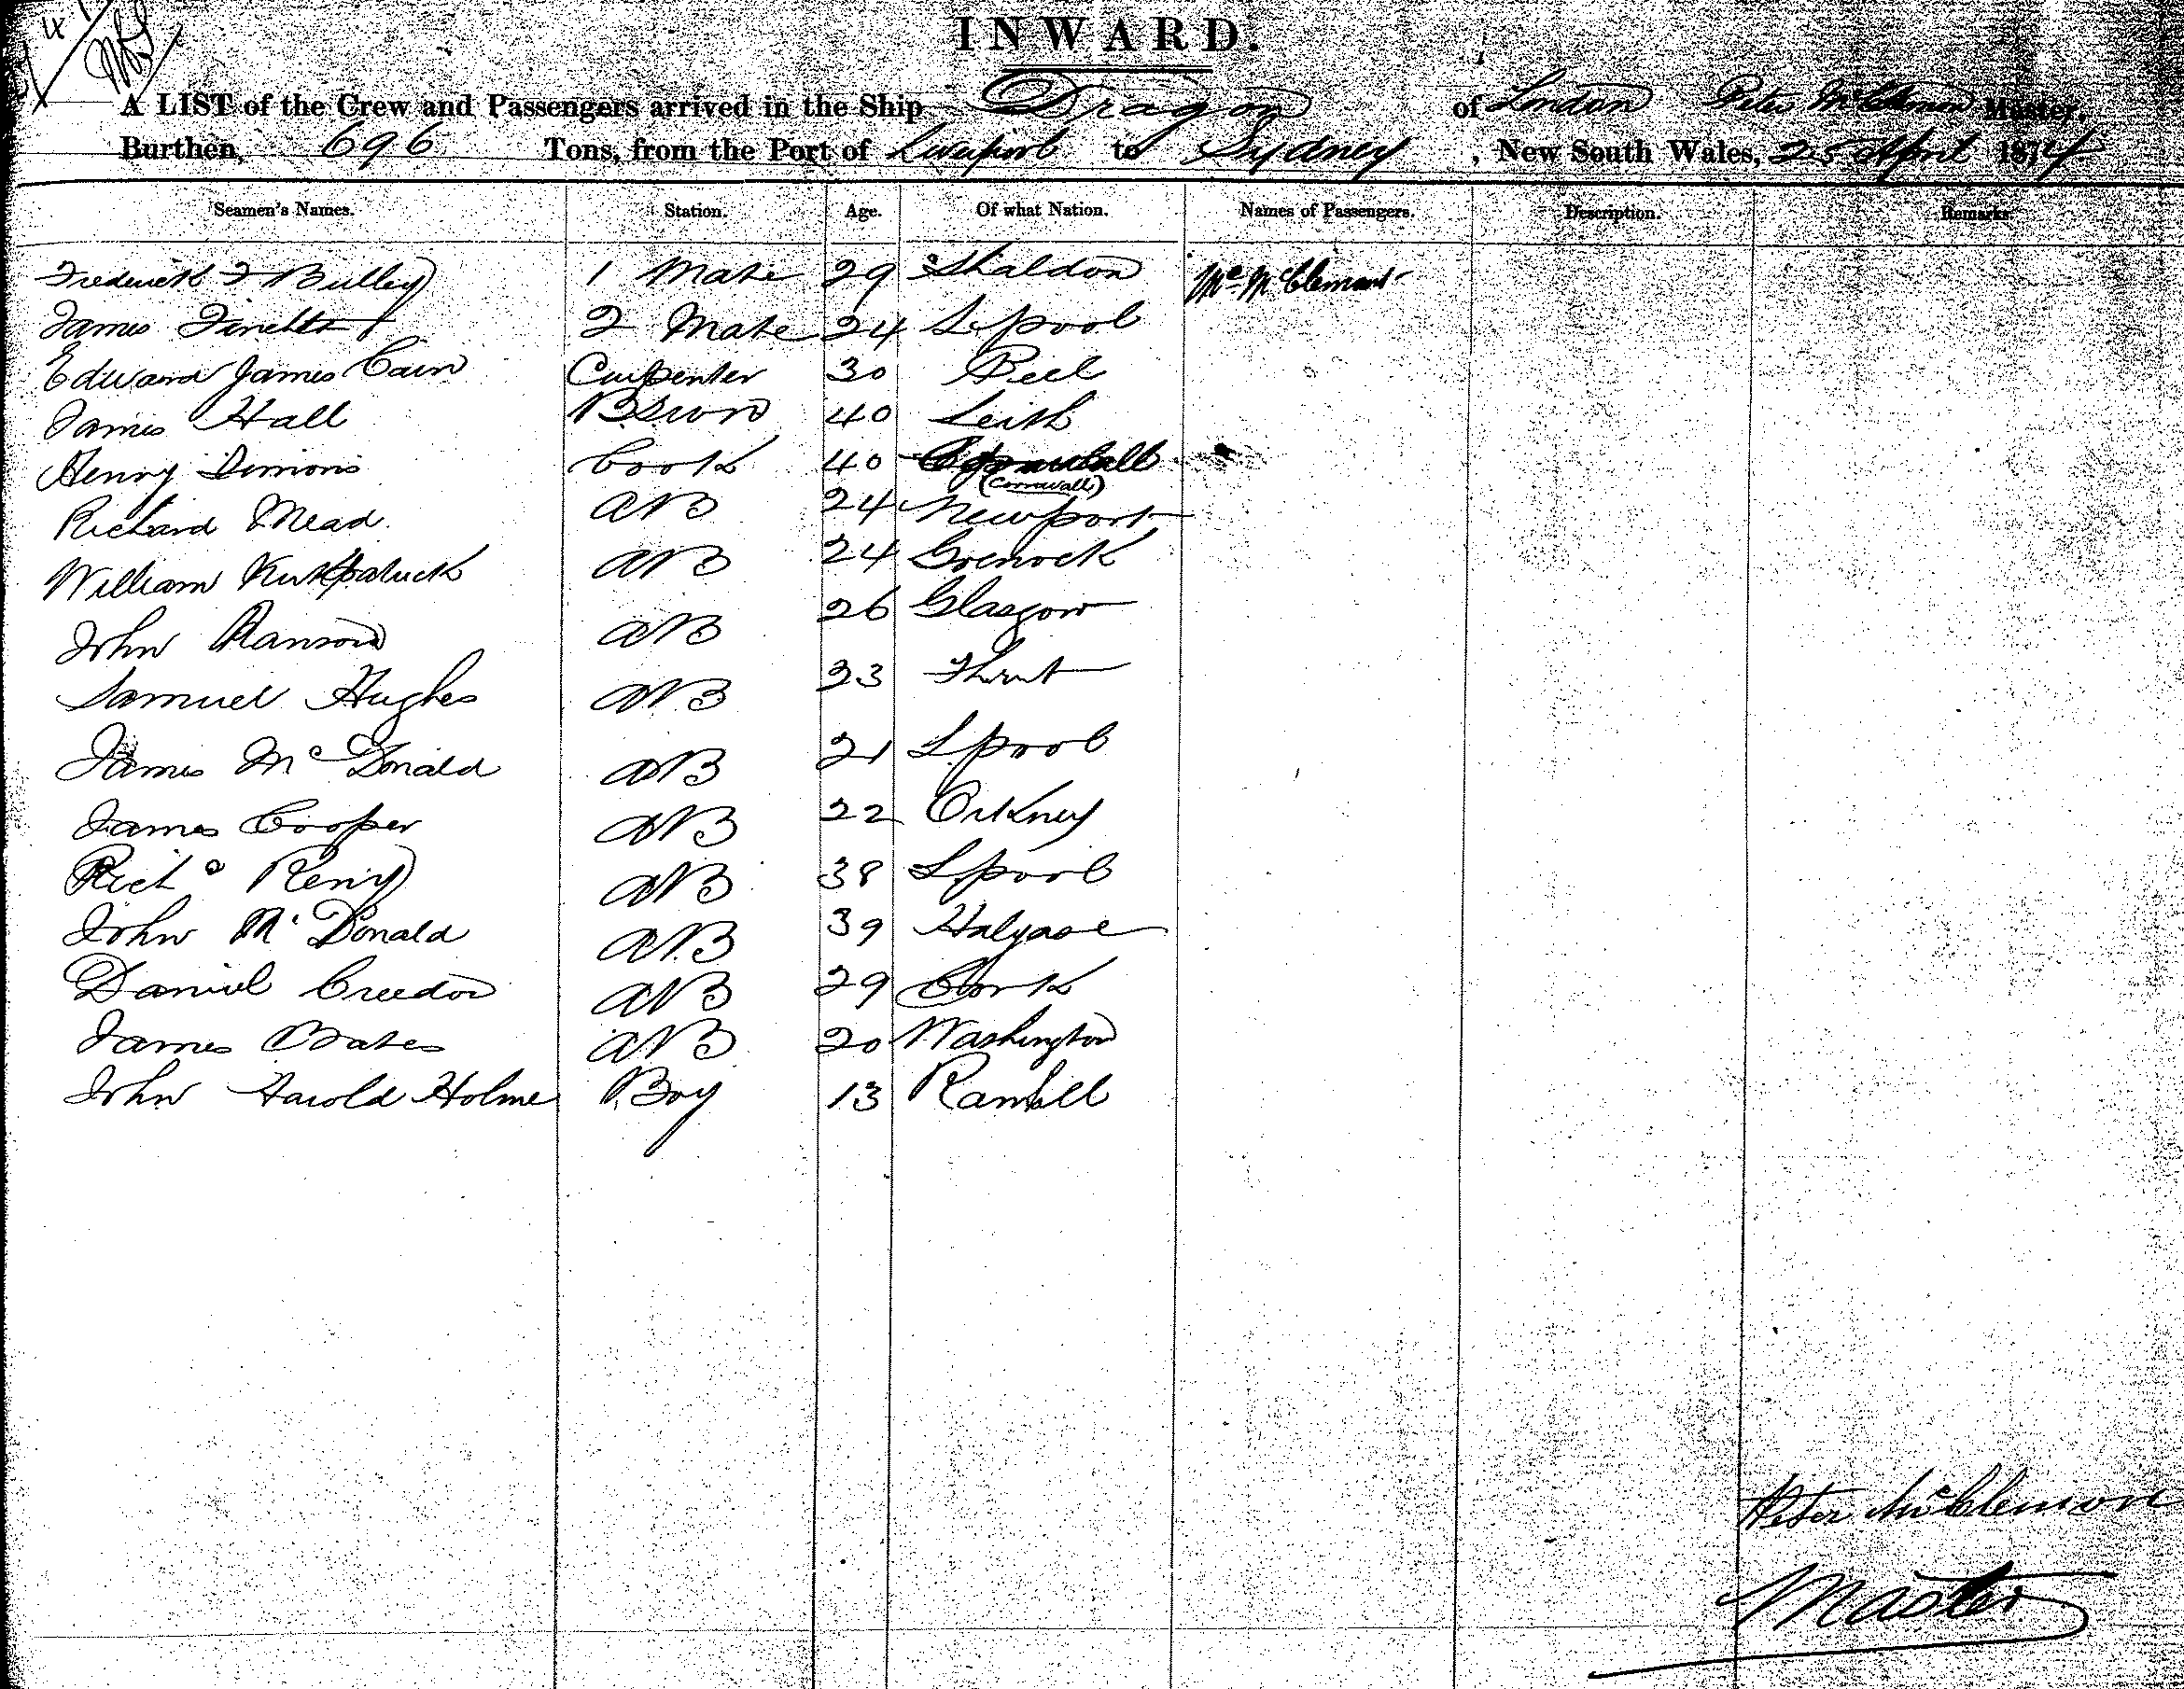 INWARD.
A LIST of the Crew and Passengers arrived in the Ship Dragon of London Peter McClemon Master,
Burthen, 696 Tons, from the Port of Liverpool to Sydney, New South Wales, 25 April 1874
Seamen's Names. Station. Age. Of what Nation. Names of Passengers. Description. Remarks.
Frederick F Bulley 1 Mate 29 Shaldon
James 2 Mate 24 Lpool
Edward James Cain Carpenter 30 Peel
James Hall BSwon 40 Leith
Henry Simons Cook 40
(Cornwall)
Richard Mead AB 24 Newport
William Kirkpatrick AB 24 Greenock
John Ransom AB 26 Glasgow
Samuel Hughes AB 23 Flint
James McDonald AB 21 Lpool
James Cooper AB 22 Orkney
Richd AB 38 Lpool
John McDonald AB 39
Daniel Creedon AB 29 Cork
James Bates AB 20 Washington
John Harold Holme Boy 13 Rainhill
Peter McClemon
Master